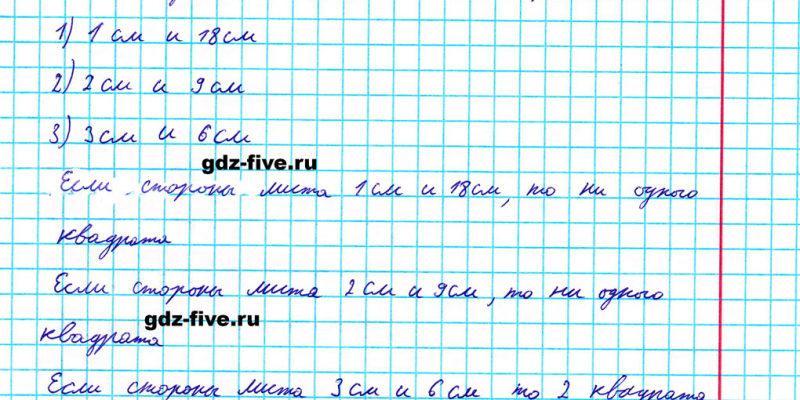 1) 1 см и 18 см
2) 2 см и 9 см
3) 3 см и 6 см
gdz-five.ru
Если стороны листа 1 см и 18 см, то ни одного
квадрата
Если стороны листа 2 см и 9 см, то ни одного
gdz-five.ru
квадрата
Если стороны листа 3 см и 6 см то 2 квадрата